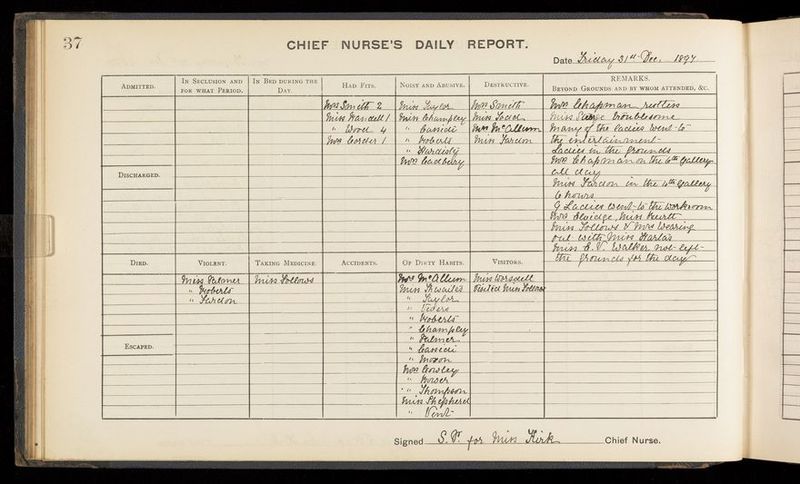 37
CHIEF NURSE'S DAILY REPORT.
Date Friday 31st Dec. 1897
ADMITTED.
IN SECLUSION AND FOR WHAT PERIOD.
IN BED DURING THE DAY.
HAD FITS.
NOISY AND ABUSIVE.
DESTRUCTIVE.
REMARKS.
BEYOND GROUNDS AND BY WHOM ATTENDED, &C.
Mrs Smith 2
Miss Randell 1
" Wood 4
Mrs Corder 1
Miss Taylor
Miss Champley
" Cassidi
" Roberts
" Hardisty
Mrs Cadbury
Mrs Smith
Miss
Mrs McAllum
Miss Yardon
Mrs Chapman restless
Miss troublesome
Many of the Ladies went to
the entertainment
Ladies in the Grounds
Mrs Chapman on the 6th Gallery
all day
Miss Yardon in the 4th Gallery
6 hours
9 Ladies went to the workroom
Mrs Miss
Miss Follows & Mrs Wearing
out with Miss
Miss E. V. Walker not left
the grounds for the day
DISCHARGED.
DIED.
VIOLENT.
TAKING MEDICINE.
ACCIDENTS.
OF DIRTY HABITS.
VISITORS.
Miss Palmer
" Roberts
" Yardon
Miss Follows
Mrs McAllum
Miss Thwaites
" Taylor
" Roberts
" Champley
" Palmer
" Cassidi
" Moxon
Mrs Crosley
" Thompson
Miss Shepherd
" Vent
Miss Worsdell
Visited Miss Follows
ESCAPED.
Signed for Miss Kirk Chief Nurse.